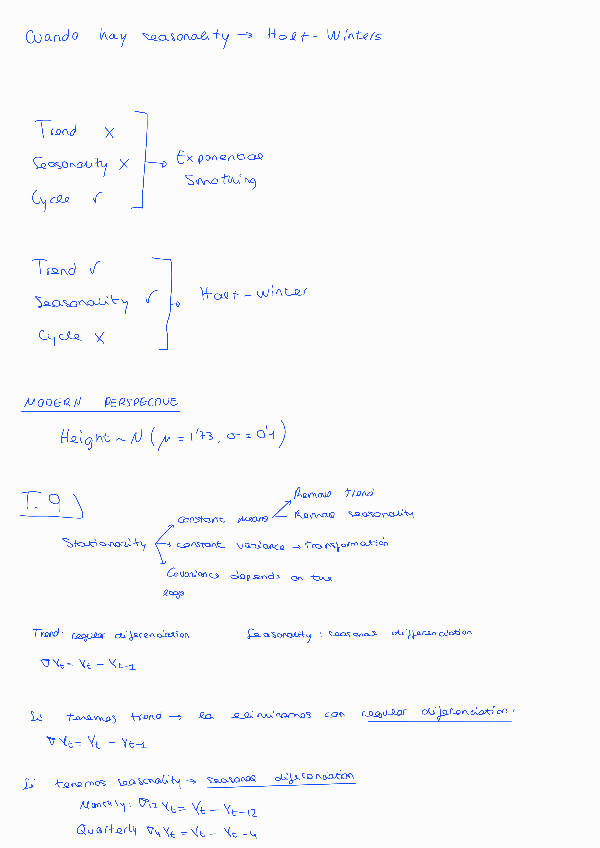 Cuando hay seasonality → Holt - Winters
Trend X
Seasonality X
Cycle ✓
→ Exponential
Smothing
Trend ✓
Seasonality ✓
Cycle X
→ Holt - Winter
MODERN PERSPECTIVE
Height ~ N ( μ = 1'73, σ = 0'1 )
T. 9 )
Stationarity
constant means
Remove trend
Remove seasonality
→ constant variance → transformation
Covariance depends on the
lags
Trend: regular diferenciation
Seasonality: seasonal differenciation
∇Yt = Yt - Yt-1
Si tenemos trend → la eliminamos con regular diferenciation.
∇Yt = Yt - Yt-1
Si tenemos seasonality → seasonal diferenciation
Monthly: ∇12 Yt = Yt - Yt-12
Quarterly ∇4 Yt = Yt - Yt-4